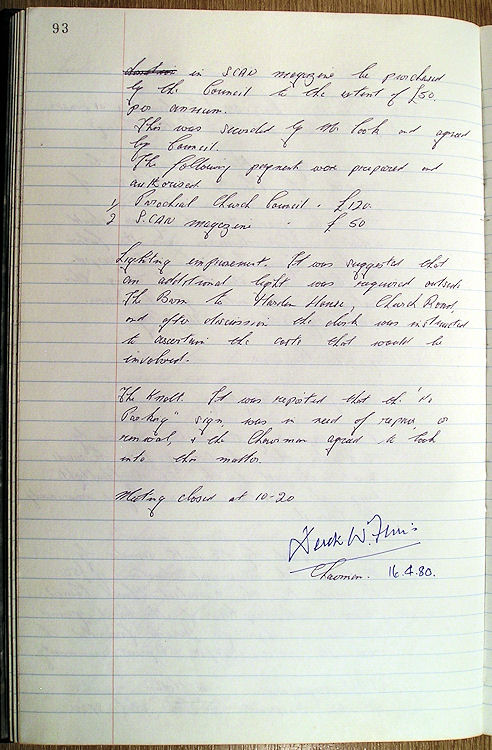 93
in SCAN magazine be purchased
by the Council to the extent of £50.
per annum.
This was seconded by Mr Cook and agreed
by Council.
The following payment were prepared and
authorised
1, Parochial Church Council . £120.
2 S.CAN magazine . £ 50
Lighting improvement. It was suggested that
an additional light was required outside
The Barn to Harden House, Church Road,
and after discussion the clerk was instructed
to ascertain the costs that would be
involved.
The Knoll. It was reported that the "No
Parking" sign was in need of repair, or
renewal, & the Chairman agreed to look
into this matter.
Meeting closed at 10-20
Derek W.
Chairman. 16.4.80.